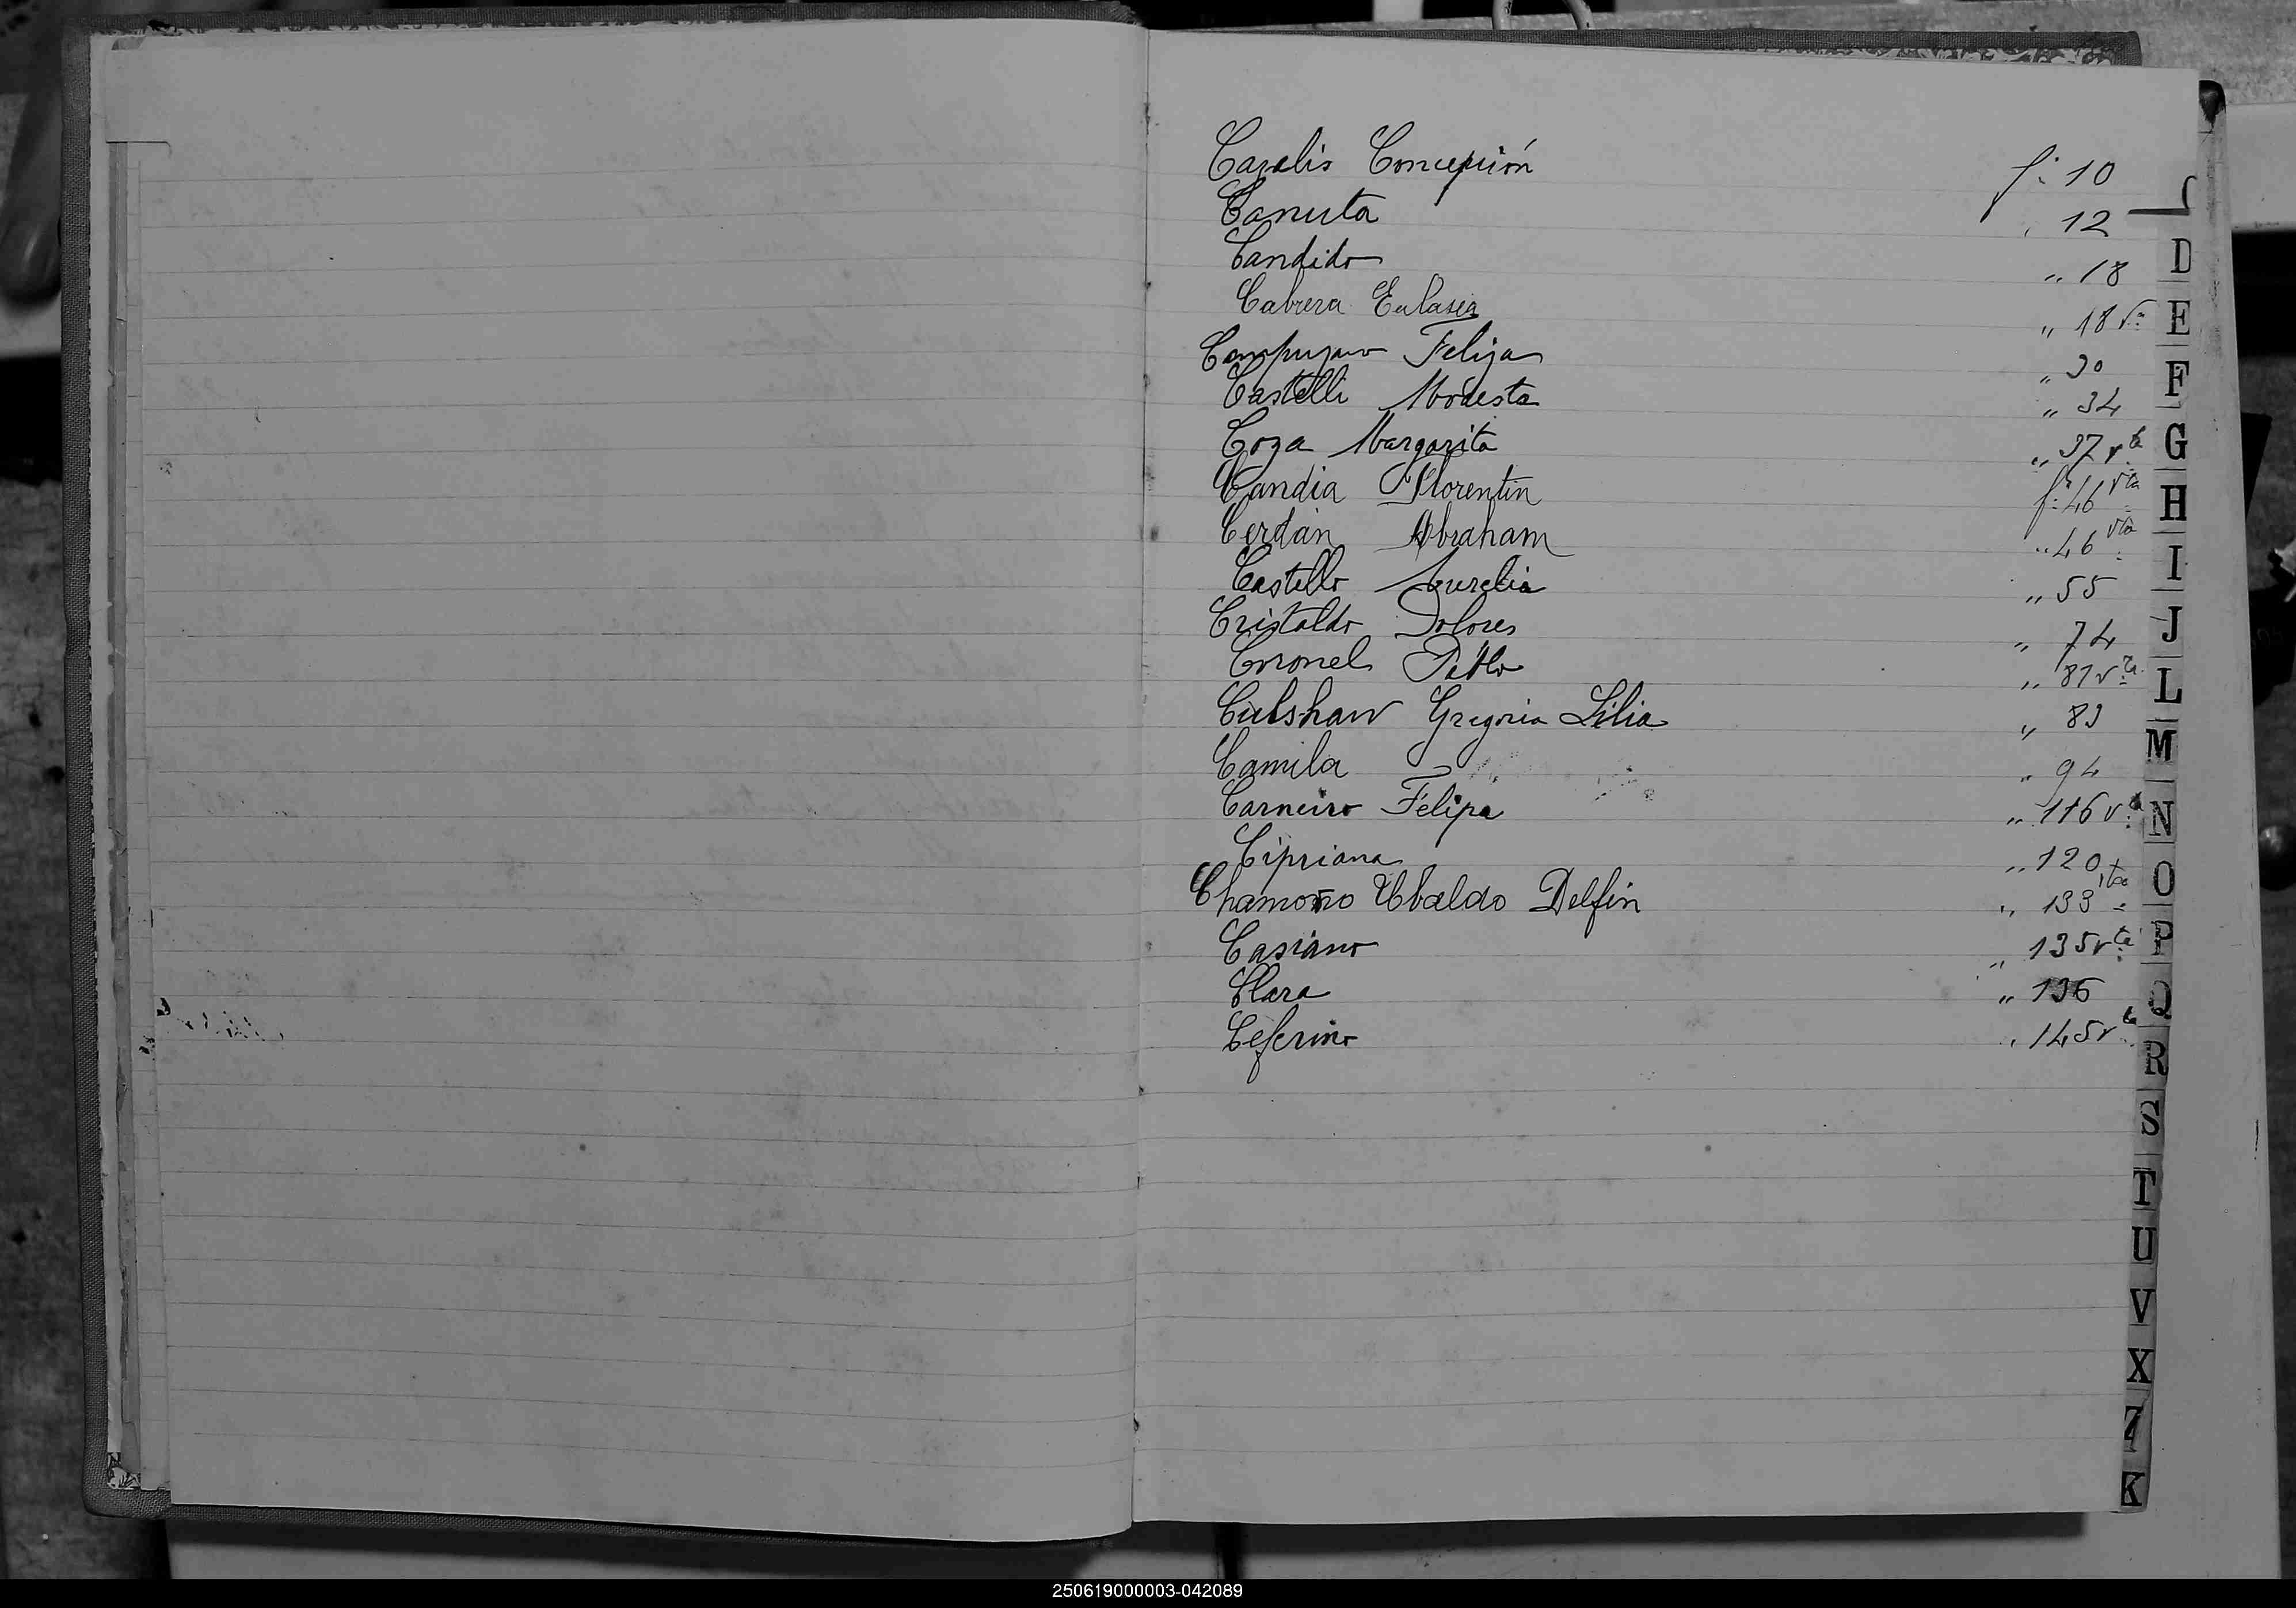 Cazalis Concepción f: 10
Canuta , 12
Candido " 18
Cabrera Eulasia " 18 vª
Campuzano Feliza " 30
Castelli Modesta " 34
Coza Margarita " 37 vta
Candia Florentin f: 46 vta
Cerdán Abraham " 46 vta
Castello Aurelia " 55
Cristaldo Dolores " 74
Coronel Pablo " 81 vta
Culshaw Gregoria Lilia " 83
Camila " 94
Carneiro Felipa " 116 vª
Cipriana " 120
Chamorro Ubaldo Delfin " 133 vta
Casiano " 135 vta
Clara " 136
Ceferino " 145 vta
C
D
E
F
G
H
I
J
L
M
N
O
P
Q
R
S
T
U
V
X
Z
K
250619000003-042089